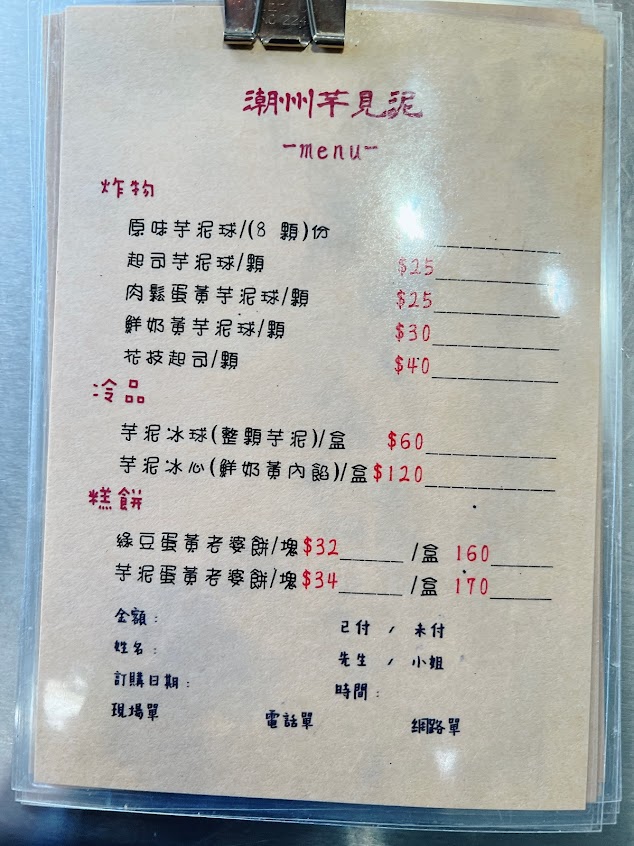 潮州芋見泥
-menu-
炸物
原味芋泥球/(8 顆)份
起司芋泥球/顆 $25
肉鬆蛋黃芋泥球/顆 $25
鮮奶黃芋泥球/顆 $30
花枝起司/顆 $40
冷品
芋泥冰球(整顆芋泥)/盒 $60
芋泥冰心(鮮奶黃內餡)/盒 $120
糕餅
綠豆蛋黃老婆餅/塊 $32 /盒 160
芋泥蛋黃老婆餅/塊 $34 /盒 170
金額: 已付 / 未付
姓名: 先生 / 小姐
訂購日期: 時間:
現場單 電話單 網路單